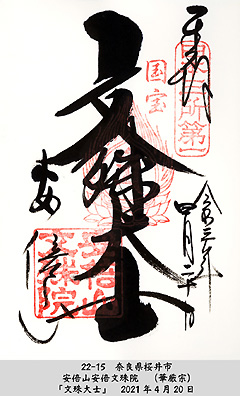 奉拝
国宝
文殊大士
令和三年
四月二十日
安倍山
文殊院
22-15　奈良県桜井市
安倍山安倍文殊院　（華厳宗）
「文殊大士」　2021年4月20日